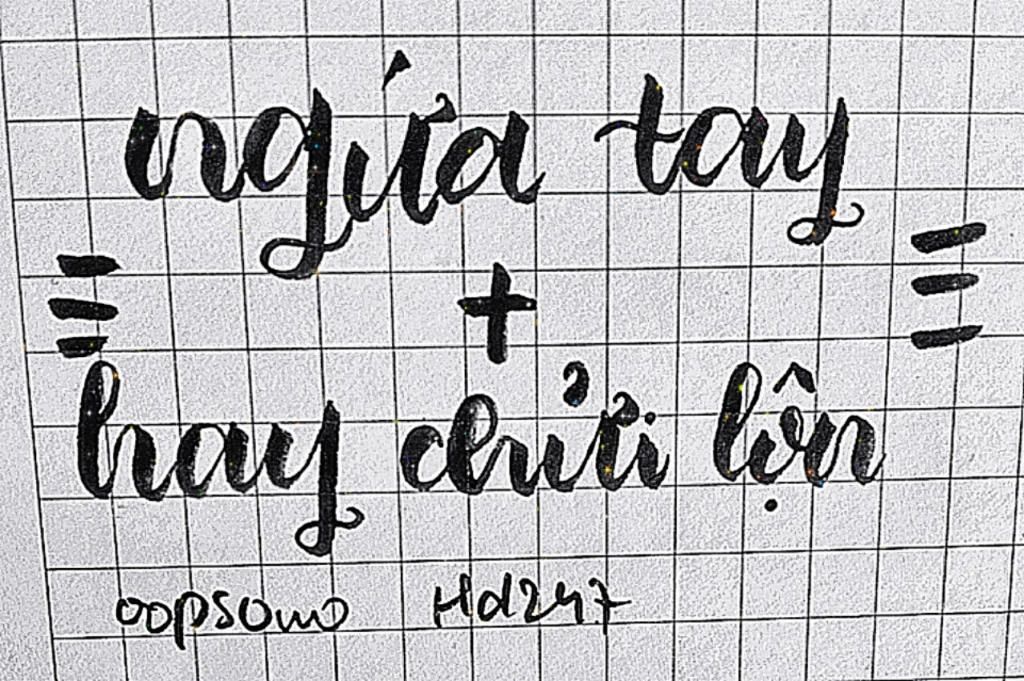 ngứa tay
+
hay chửi lộn
oopsomo Hd247